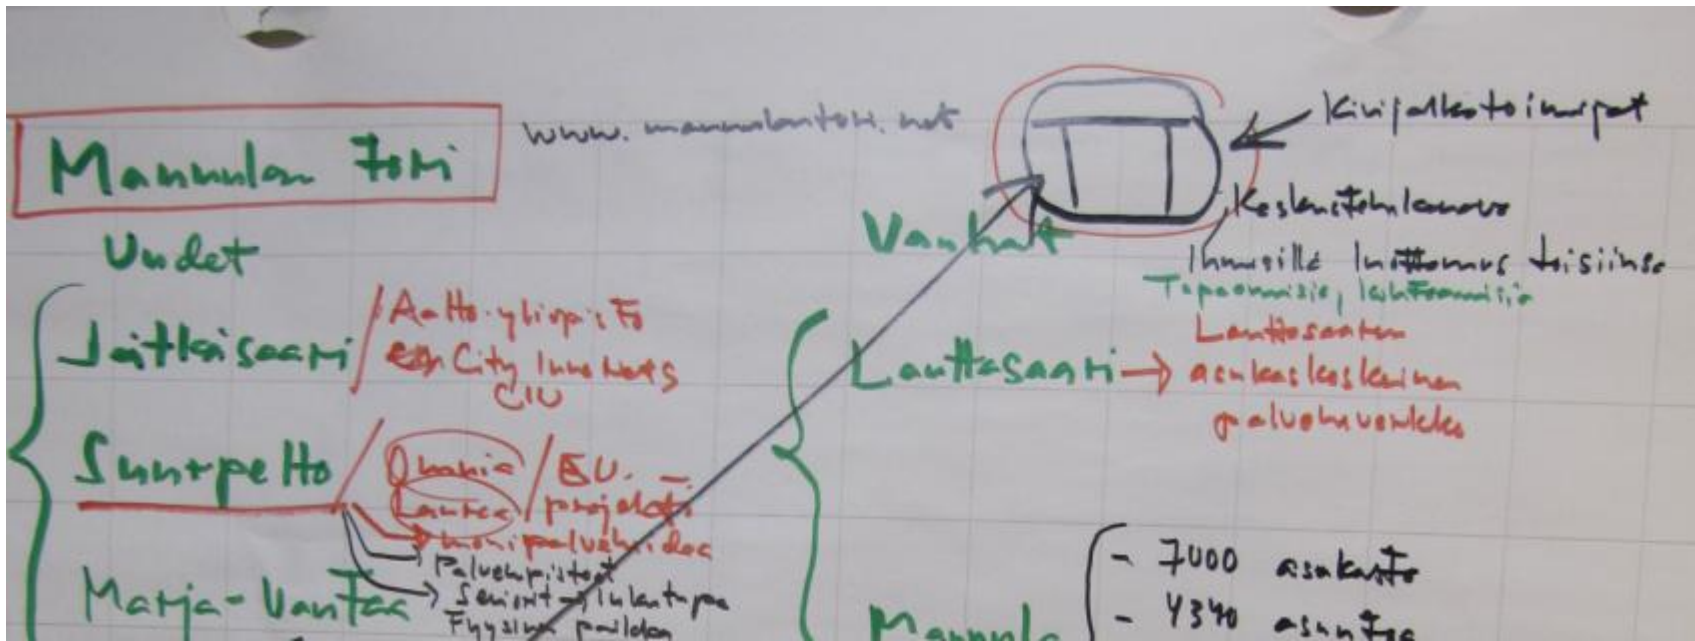 Mannulan Tori
www.mannulantori.net
Uudet
Jätkäsaari
Aalto-yliopisto
City Innoworks
CIU
Suurpelto
Omnia
Laurea
EU-
projekti
monipalveluidea
Palvelupisteet
Seniorit →
Fyysinen
Marja-Vantaa
Kivijalkatoimijat
Vanhat
Ihmisille luottamus toisiinsa
Tapaamisia, kohtaamisia
Lauttasaari →
Lauttasaaren
asukaskeskeinen
palveluverkko
Mannula
- 7000 asukasta
- 4340 asuntoa